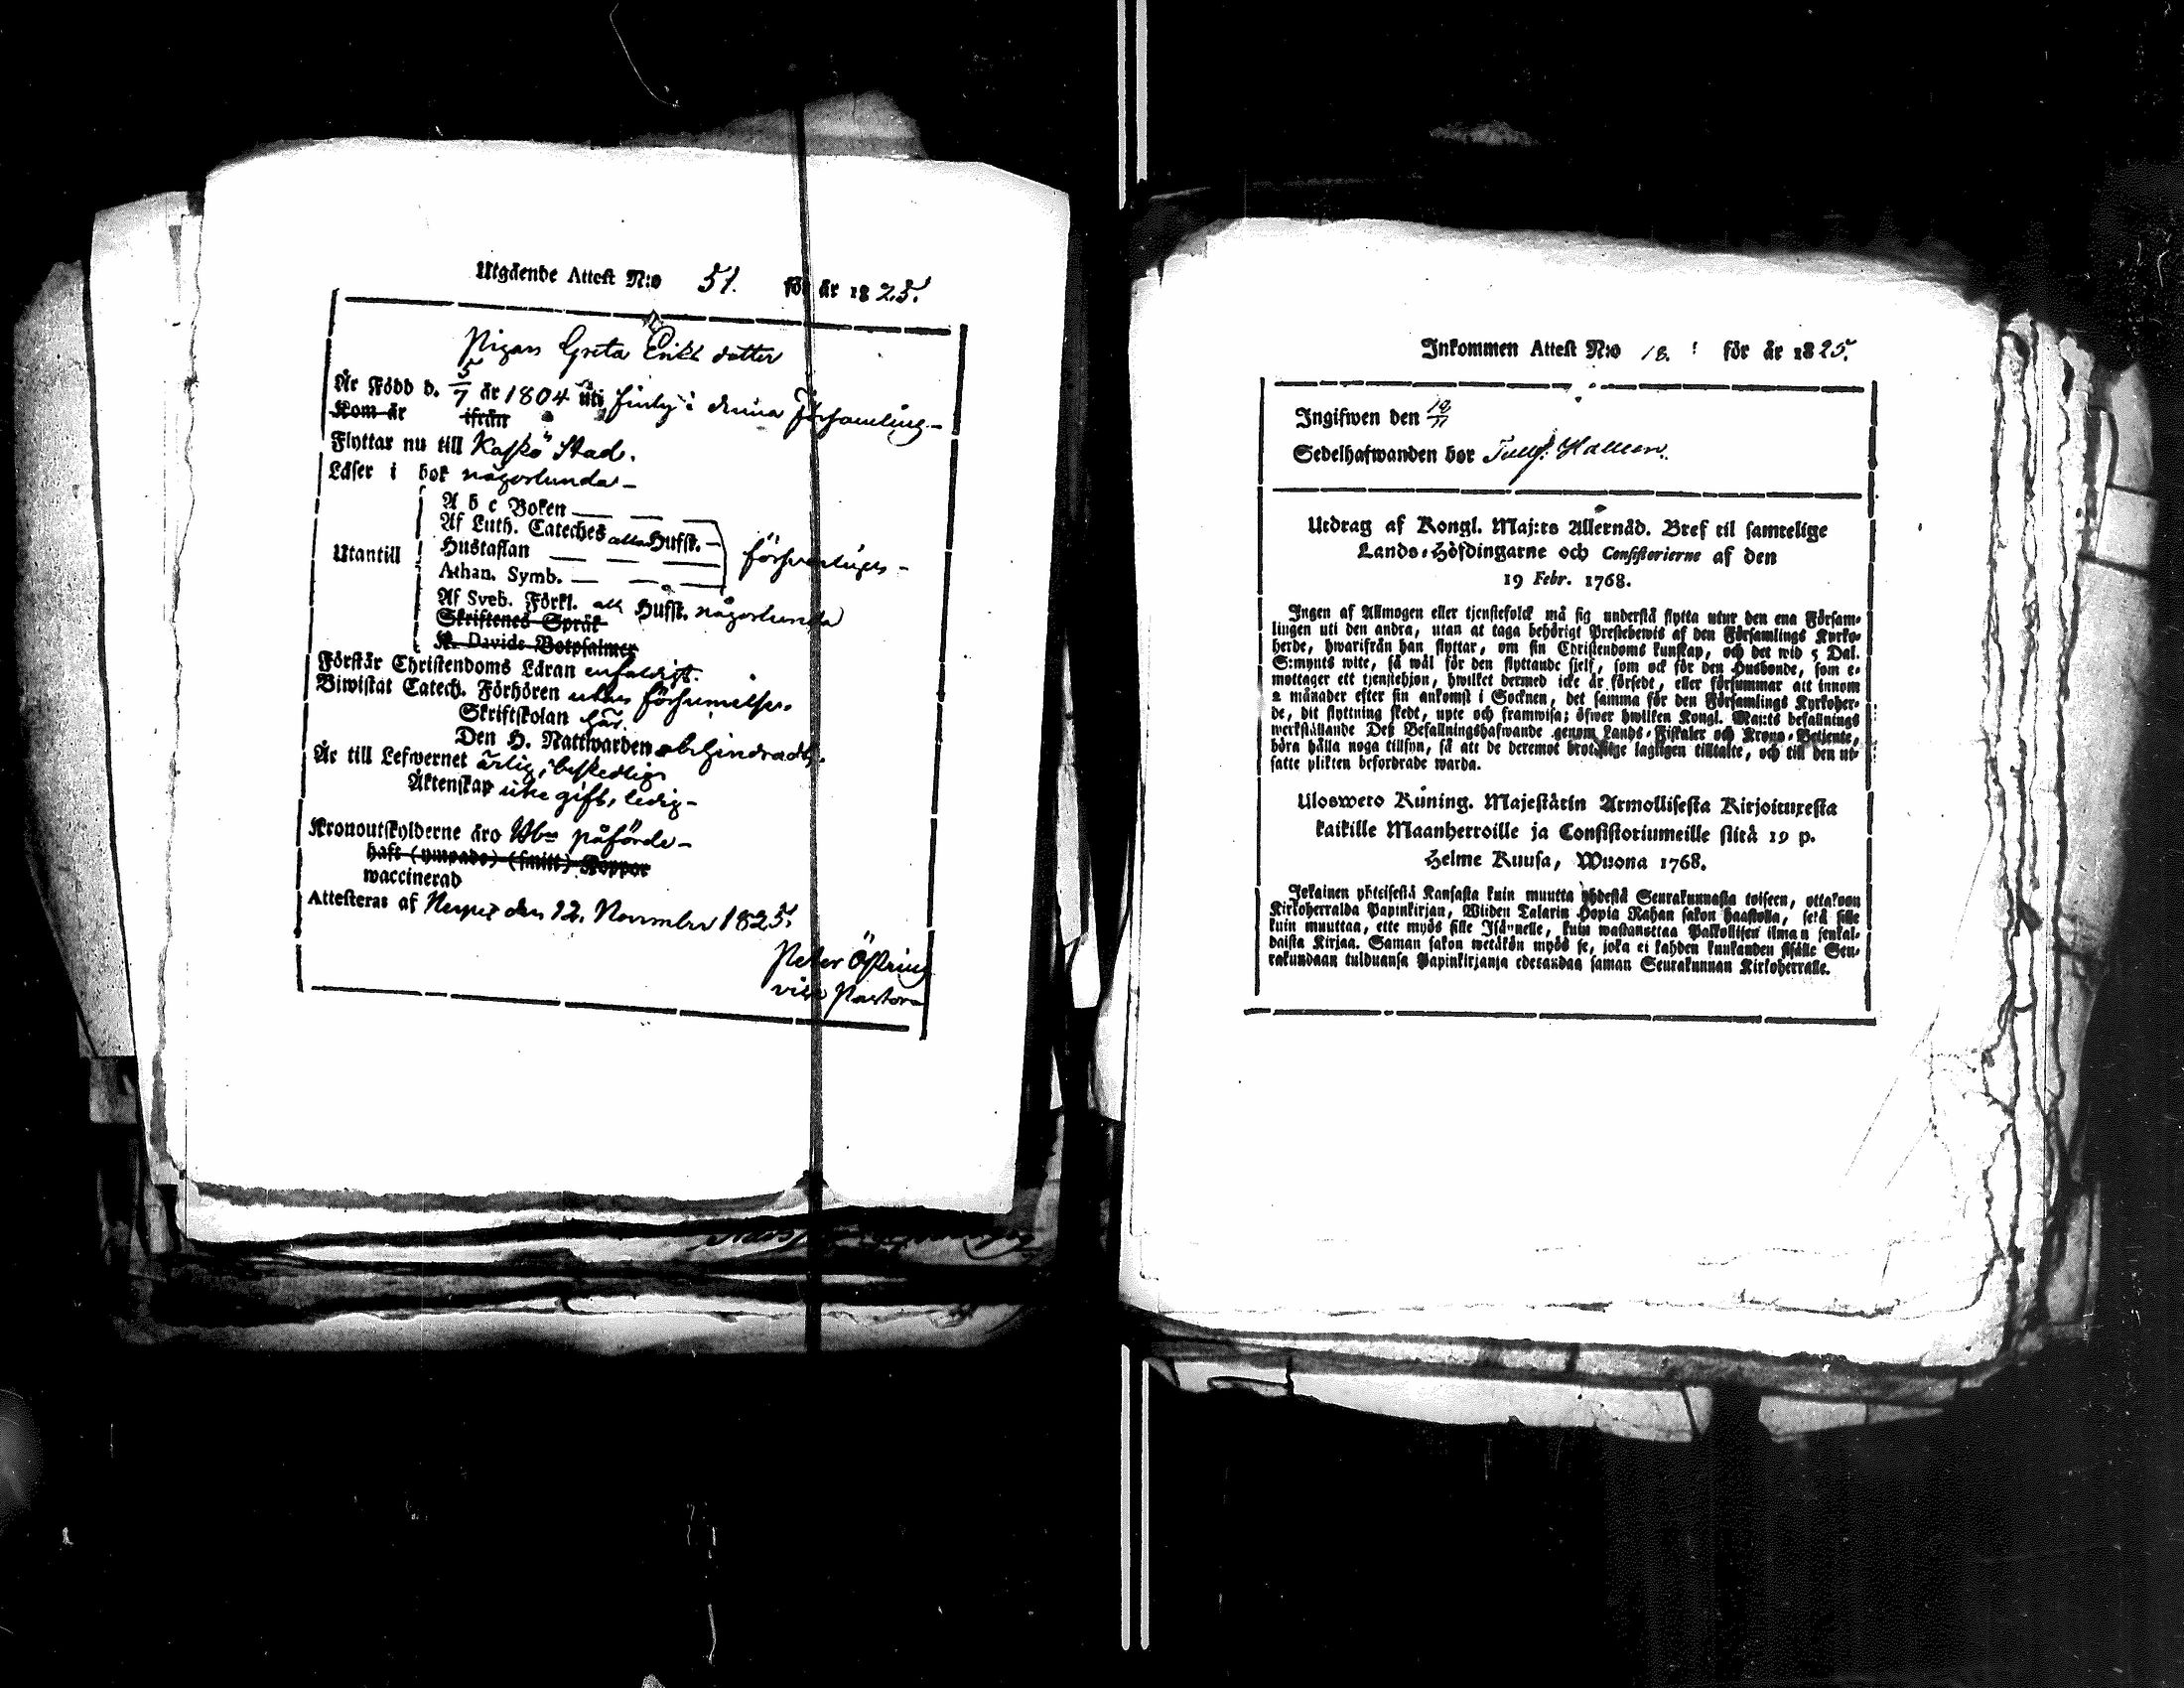 Utgående Attest N:o 51. för år 1825.
Pigan Greta Eriks dotter
Är Född d. 5/7 är 1804 uti Finby i denna Församling-
Kom år ifrån
Flyttar nu till Kaskö Stad.
Läser i bok någorlunda-
A b c Boken
Af Luth. Cateches allas Hufst.
Utantill Hustaflan försvarligen-
Athan. Symb.
Af Sveb. Förkl. all Hufst. någorlunda
Skriftenes Språk
K. Davids Botpsalmer
Förstår Christendoms Läran enfaldigt.
Biwistat Catech. Förhören utan försumelse.
Skriftskolan här.
Den H. Nattwarden obehindradt.
Är till Lefwernet ärlig, beskedlig
Äktenskap icke gift, ledig-
Kronoutskylderne äro påförde-
haft (ympade) (smitt) Koppor
waccinerad
Attesteras af Nerpes den 12. November 1825.
Peter Östring
vice Pastor
Inkommen Attest N:o 18. för år 1825.
Ingifwen den
Sedelhafwanden bor
Utdrag af Kongl. Maj:ts Allernåd. Bref til samtelige
Lands-Höfdingarne och Consistorierne af den
19 Febr. 1768.
Ingen af Allmogen eller tjenstefolck må sig understå flytta utur den ena Försam-
lingen uti den andra, utan at taga behörigt Prestebewis af den Församlings Kyrko-
herde, hwarifrån han flyttar, om sin Christendoms kunskap, och det wid 5 Dal.
S:mynts wite, så wäl för den flyttande sjelf, som ock för den Husbonde, som e-
mottager ett tjenstehjon, hwilket dermed icke är försedt, eller försummar att innom
2 månader efter sin ankomst i Socknen, det samma för den Församlings Kyrkoher-
de, dit flyttning skedt, upte och framwisa; öfwer hwilken Kongl. Maj:ts befallnings
werkställande Deß Befallningshafwande genom Lands-Fiskaler och Krono-Betjente,
böra hålla noga tillsyn, så att de deremot brotslige lagligen tilltalte, och till den ut-
satte plikten befordrade warda.
Ulosweto Kuning. Majestätin Armollisesta Kirjoituxesta
kaikille Maanherroille ja Consistoriumeille siitä 19 p.
Helme Kuusa, Wuona 1768.
Jokainen yhteisestä Kansasta kuin muutta yhdestä Seurakunnasta toiseen, ottakoon
Kirkoherralda Papinkirjan, Wiiden Talarin Hopia Rahan sakon haastolla, sekä sille
kuin muuttaa, ette myös sille Isännelle, kuin wastanottaa Palkollisen ilman senkal-
daista Kirjaa. Saman sakon wetäkön myös se, joka ei kahden kuukauden sisälle Seu-
rakundaan tulduansa Papinkirjansa edesandaa saman Seurakunnan Kirkoherralle.